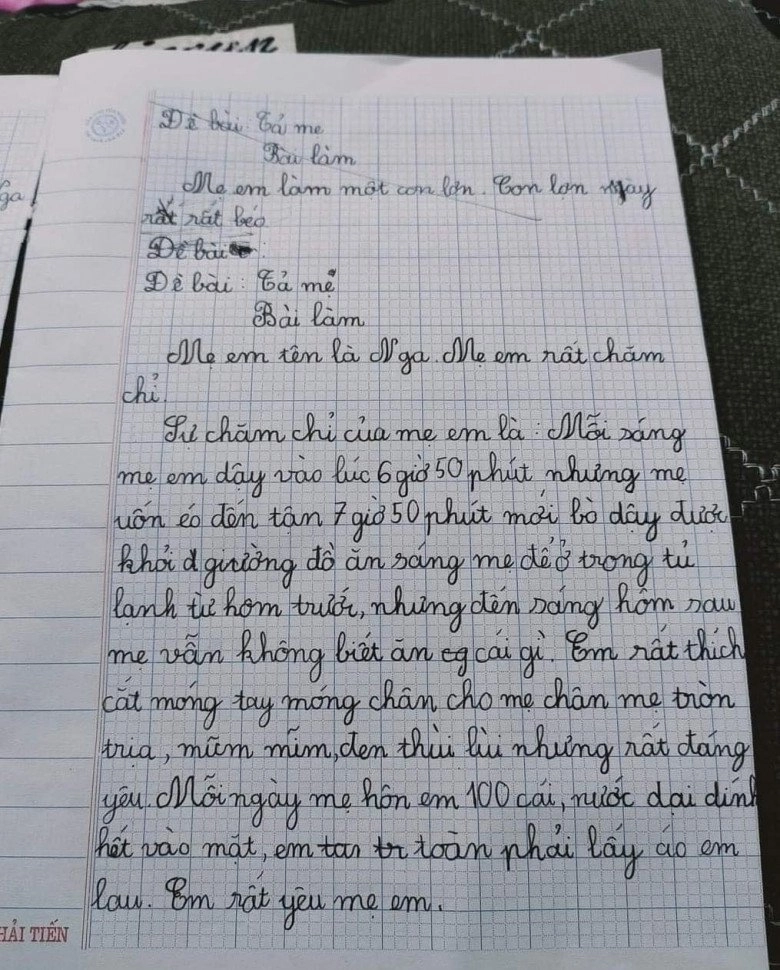 Đề bài Tả mẹ
Bài làm
Mẹ em làm một con lợn. Con lợn này
rất rất béo
Đề bài
Đề bài: Tả mẹ
Bài làm
Mẹ em tên là Nga. Mẹ em rất chăm
chỉ.
Sự chăm chỉ của mẹ em là: Mỗi sáng
mẹ em dậy vào lúc 6 giờ 50 phút nhưng mẹ
uốn éo đến tận 7 giờ 50 phút mới bò dậy được
khỏi giường đồ ăn sáng mẹ để ở trong tủ
lạnh từ hôm trước, nhưng đến sáng hôm sau
mẹ vẫn không biết ăn cái gì. Em rất thích
cắt móng tay móng chân cho mẹ chân mẹ tròn
trịa, mũm mĩm, đen thùi lùi nhưng rất đáng
yêu. Mỗi ngày mẹ hôn em 100 cái, nước dại dính
hết vào mặt, em toàn phải lấy áo em
lau. Em rất yêu mẹ em.
ga
HẢI TIẾN